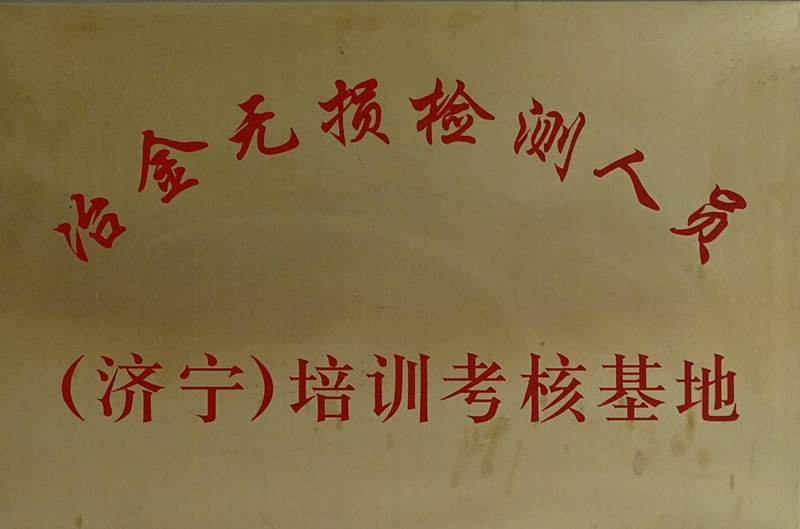 冶金无损检测人员
（济宁）培训考核基地